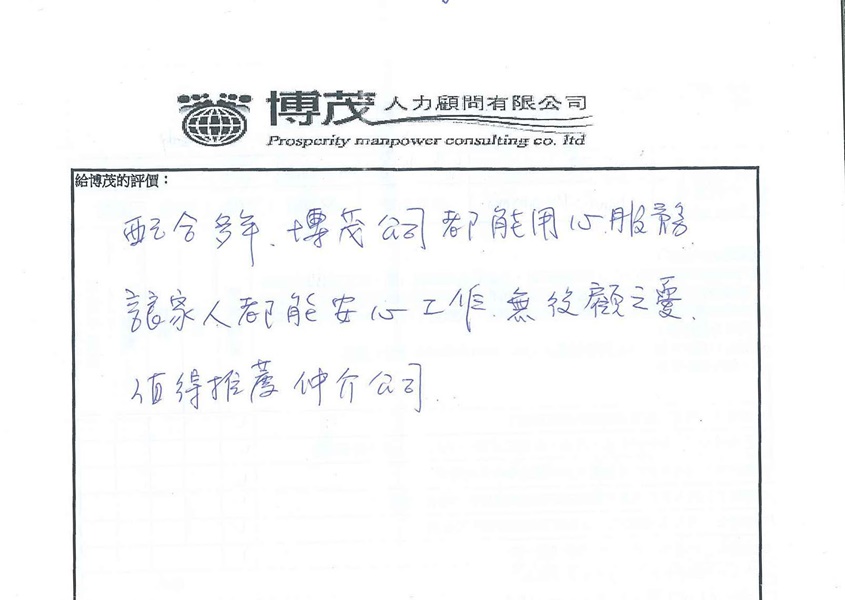 博茂人力顧問有限公司
Prosperity manpower consulting co. ltd
給博茂的評價：
配合多年、博茂公司都能用心服務
讓家人都能安心工作、無後顧之憂、
值得推薦仲介公司.